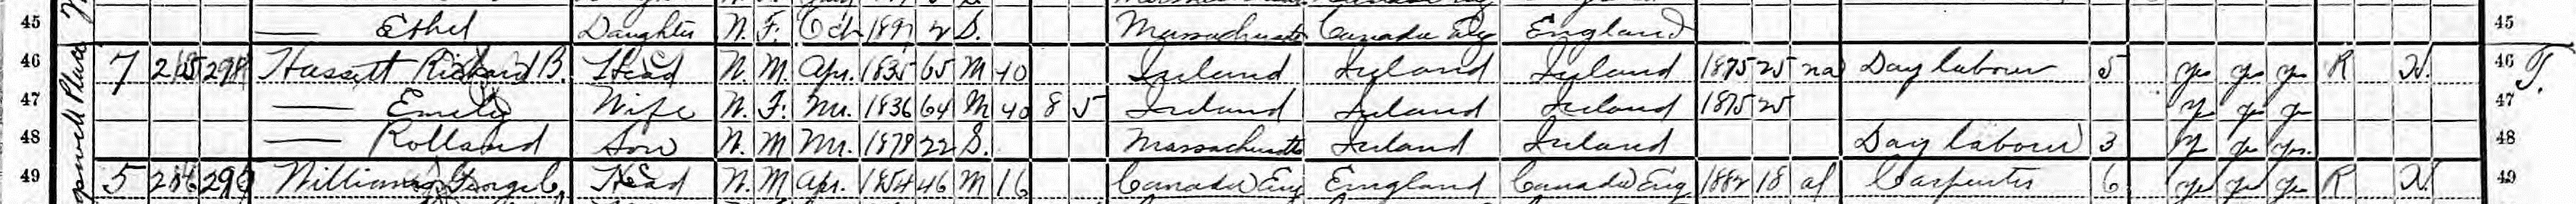 45 — Ethel Daughter W. F. Oct 1897 2 S. Massachusetts Canada Eng England 45
46 7 298 Hassett Rickard B. Head W. M. Apr. 1835 65 M 40 Ireland Ireland Ireland 1875 25 na Day labour 5 yes yes yes R H. 46
47 — Emily Wife W. F. Mr. 1836 64 M 40 8 5 Ireland Ireland Ireland 1875 25 y y y 47
48 — Rolland Son W. M Mr. 1878 22 S. Massachusetts Ireland Ireland Day labour 3 y ye yes. 48
49 5 Williams George C. Head W. M Apr. 1854 46 M 16 Canada Eng England Canada Eng. 1882 18 al Carpenter 6 yes yes yes R H. 49